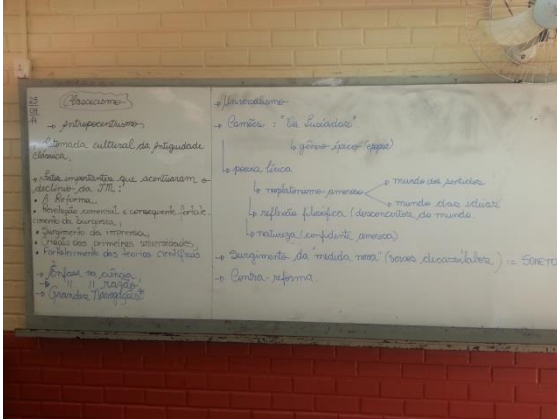 25
04
Classicismo
→ Antropocentrismo,
→ Retomada cultural da Antiguidade
clássica,
→ Fatos importantes que acentuaram o
declínio da IM:
• A Reforma,
• Revolução comercial e consequente fortale
cimento da burguesia,
• Surgimento da imprensa,
• Criação das primeiras universidades,
• Fortalecimento das teorias científicas
→ Ênfase na ciência,
→ " " razão,
→ Grandes Navegações
→ Universalismo
→ Camões: "Os Lusíadas"
↳ gênero épico (epopeia)
↳ poesia lírica
↳ neoplatonismo amoroso
mundo dos sentidos
mundo das ideias
↳ reflexão filosófica (desconcertos do mundo
↳ natureza (confidente amorosa)
→ Surgimento da "medida nova" (versos decassílabos) := SONETO
→ Contra-reforma.